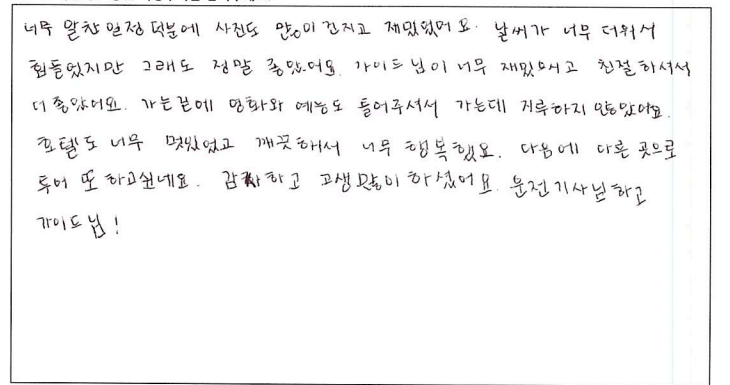 너무 알찬 일정 덕분에 사진도 많이 건지고 재밌었어요. 날씨가 너무 더워서
힘들었지만 그래도 정말 좋았어요. 가이드님이 너무 재밌으시고 친절하셔서
더 좋았어요. 가는길에 영화와 예능도 틀어주셔서 가는데 지루하지 않았어요.
호텔도 너무 멋있었고 깨끗해서 너무 행복했요. 다음에 다른 곳으로
투어 또 하고싶네요. 감사하고 고생많이 하셨어요. 운전기사님하고
가이드님!